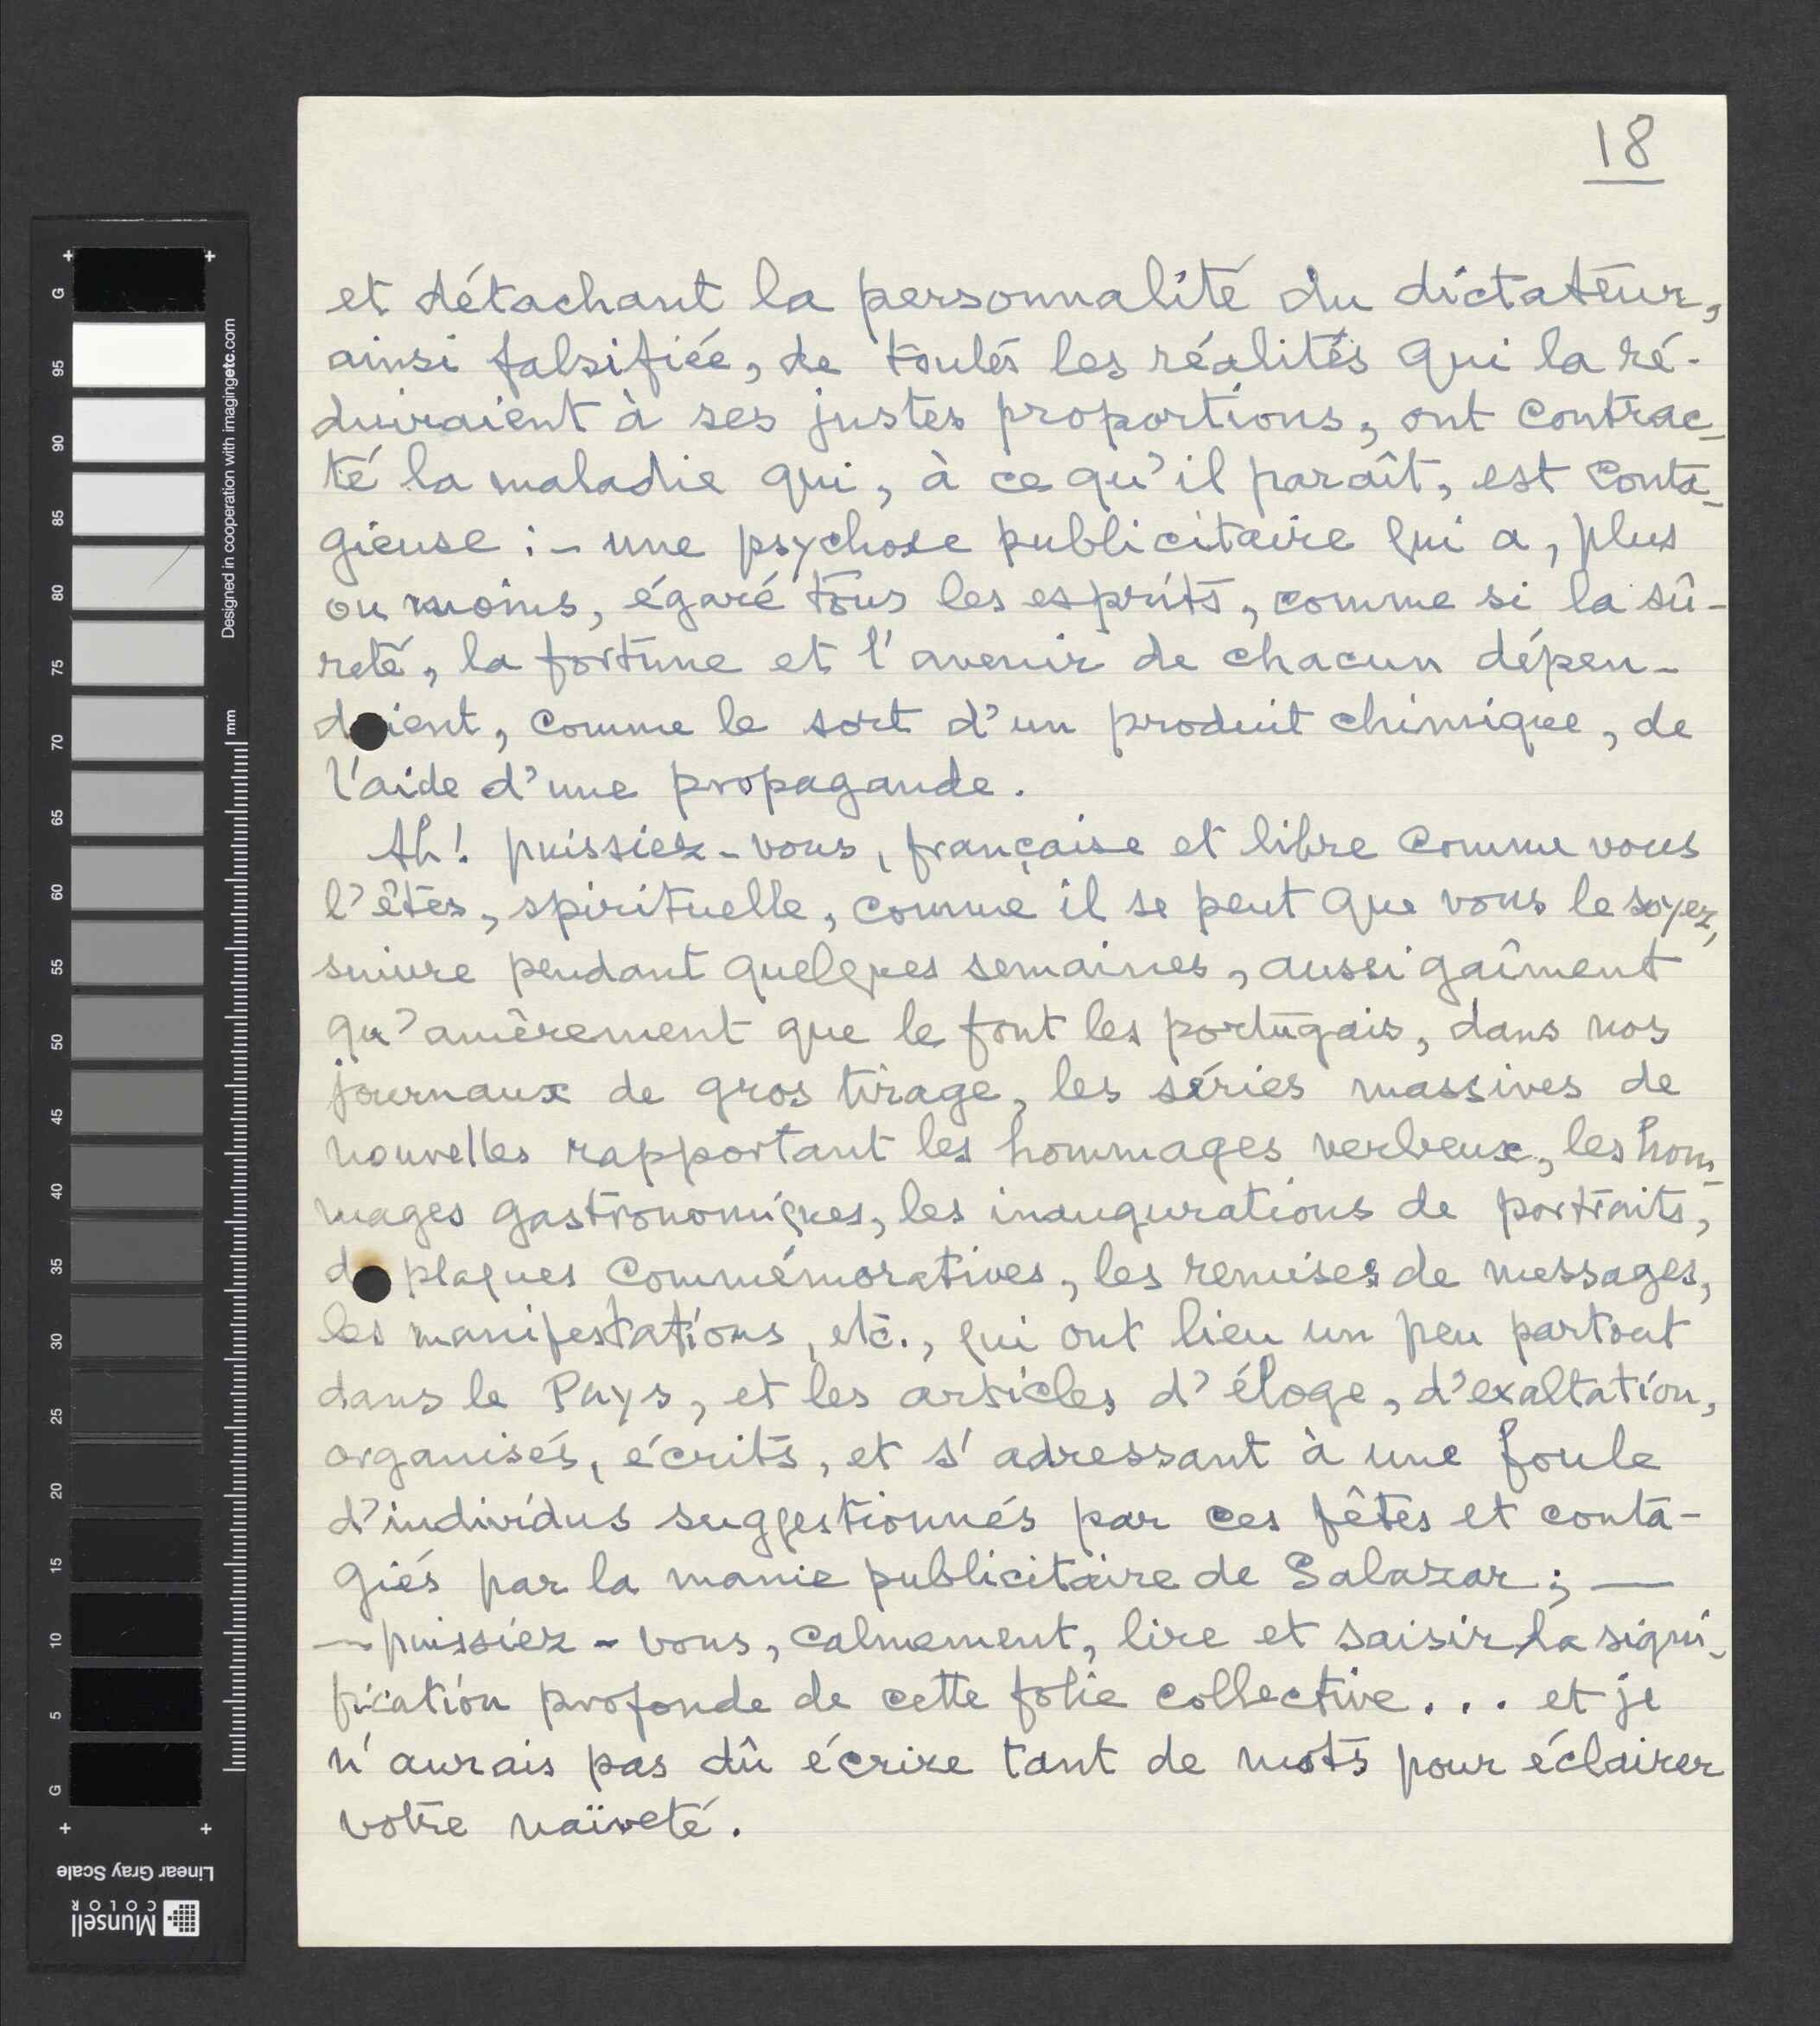 18
et détachant la personnalité du dictateur,
ainsi falsifiée, de toutes les réalités qui la ré-
duiraient à ses justes proportions, ont contrac-
té la maladie qui, à ce qu'il paraît, est conta-
gieuse : - une psychose publicitaire qui a, plus
ou moins, égaré tous les esprits, comme si la sû-
reté, la fortune et l'avenir de chacun dépen-
daient, comme le sort d'un produit chimique, de
l'aide d'une propagande.
Ah! puissiez-vous, française et libre comme vous
l'êtes, spirituelle, comme il se peut que vous le soyez,
suivre pendant quelques semaines, aussi gaîment
qu'amèrement que le font les portugais, dans nos
journaux de gros tirage, les séries massives de
nouvelles rapportant les hommages verbeux, les hom-
mages gastronomiques, les inaugurations de portraits,
de plaques commémoratives, les remises de messages,
les manifestations, etc., qui ont lieu un peu partout
dans le Pays, et les articles d'éloge, d'exaltation,
organisés, écrits, et s'adressant à une foule
d'individus suggestionnés par ces fêtes et conta-
giés par la manie publicitaire de Salazar; —
— puissiez-vous, calmement, lire et saisir la signi-
fication profonde de cette folie collective... et je
n'aurais pas dû écrire tant de mots pour éclairer
votre naïveté.
Designed in cooperation with imagingetc.com
mm
G
95
90
85
80
75
70
65
60
55
50
45
40
35
30
25
20
15
10
5
G
Linear Gray Scale
Munsell
COLOR